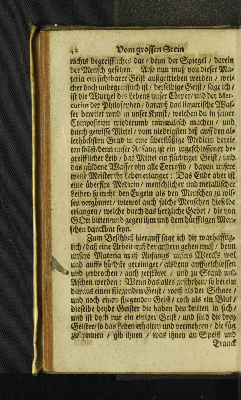 42 Vom grossen Stein
nichts begreifflichers dar / denn der Spiegel / darein
der Mensch gesehen. Also nun muß von dieser Ma-
teria ein sichtbarer Geist außgetrieben werden / wel-
cher doch unbegreifflich ist / derselbige Geist / sage ich /
ist die Wurtzel des Lebens unser Cörper und der Mer-
curius der Philosophen / darauß das
ser bereitet wird in unser Kunst / welchen du in seiner
Composition wiederumb materialisch machen / und
durch gewisse Mittel / vom niedrigsten biß auff den al-
lerhöchsten Grad in eine Medicin
denn unser Anfang ist ein
greifflicher Leib / das Mittel ein flüchtiger Geist / und
das güldene Wasser ohn alle Corrosiv / davon unsere
weise Meister ihr Leben erlanget: Das Ende aber ist
eine Medicin / menschlicher und metallischer
Leiber / so mehr den Engeln als den Menschen zu wis-
sen vergönnet / wiewol auch solche Menschen dieselbe
erlangen / welche durch das hertzliche Gebet / die von
GOtt bitten und gegen ihm und dem dürfftigen Men-
schen danckbar seyn.
Zum Beschluß hierauff sage ich dir warhafftig-
lich / daß eine Arbeit auß der andern gehen muß / denn
unsere Materia muß Anfangs unsers Wercks wol
und auffs höchste gereiniget / alsdenn auffgeschlossen
und zerbrochen / auch zerstöret / und zu Staub und
Aschen werden: Wenn das alles geschehen / so bereite
darauß einen fliegenden Geist / weiß als der Schnee /
und noch einen fliegenden Geist / roth als ein Blut /
dieselbe beyde Geister die haben den dritten in sich /
und ist doch nur ein einiger Geist / und sind die drey
Geister / so das Leben erhalten und vermehren / die füg
zusammen / gib ihnen / was ihnen an Speiß und
Tranck